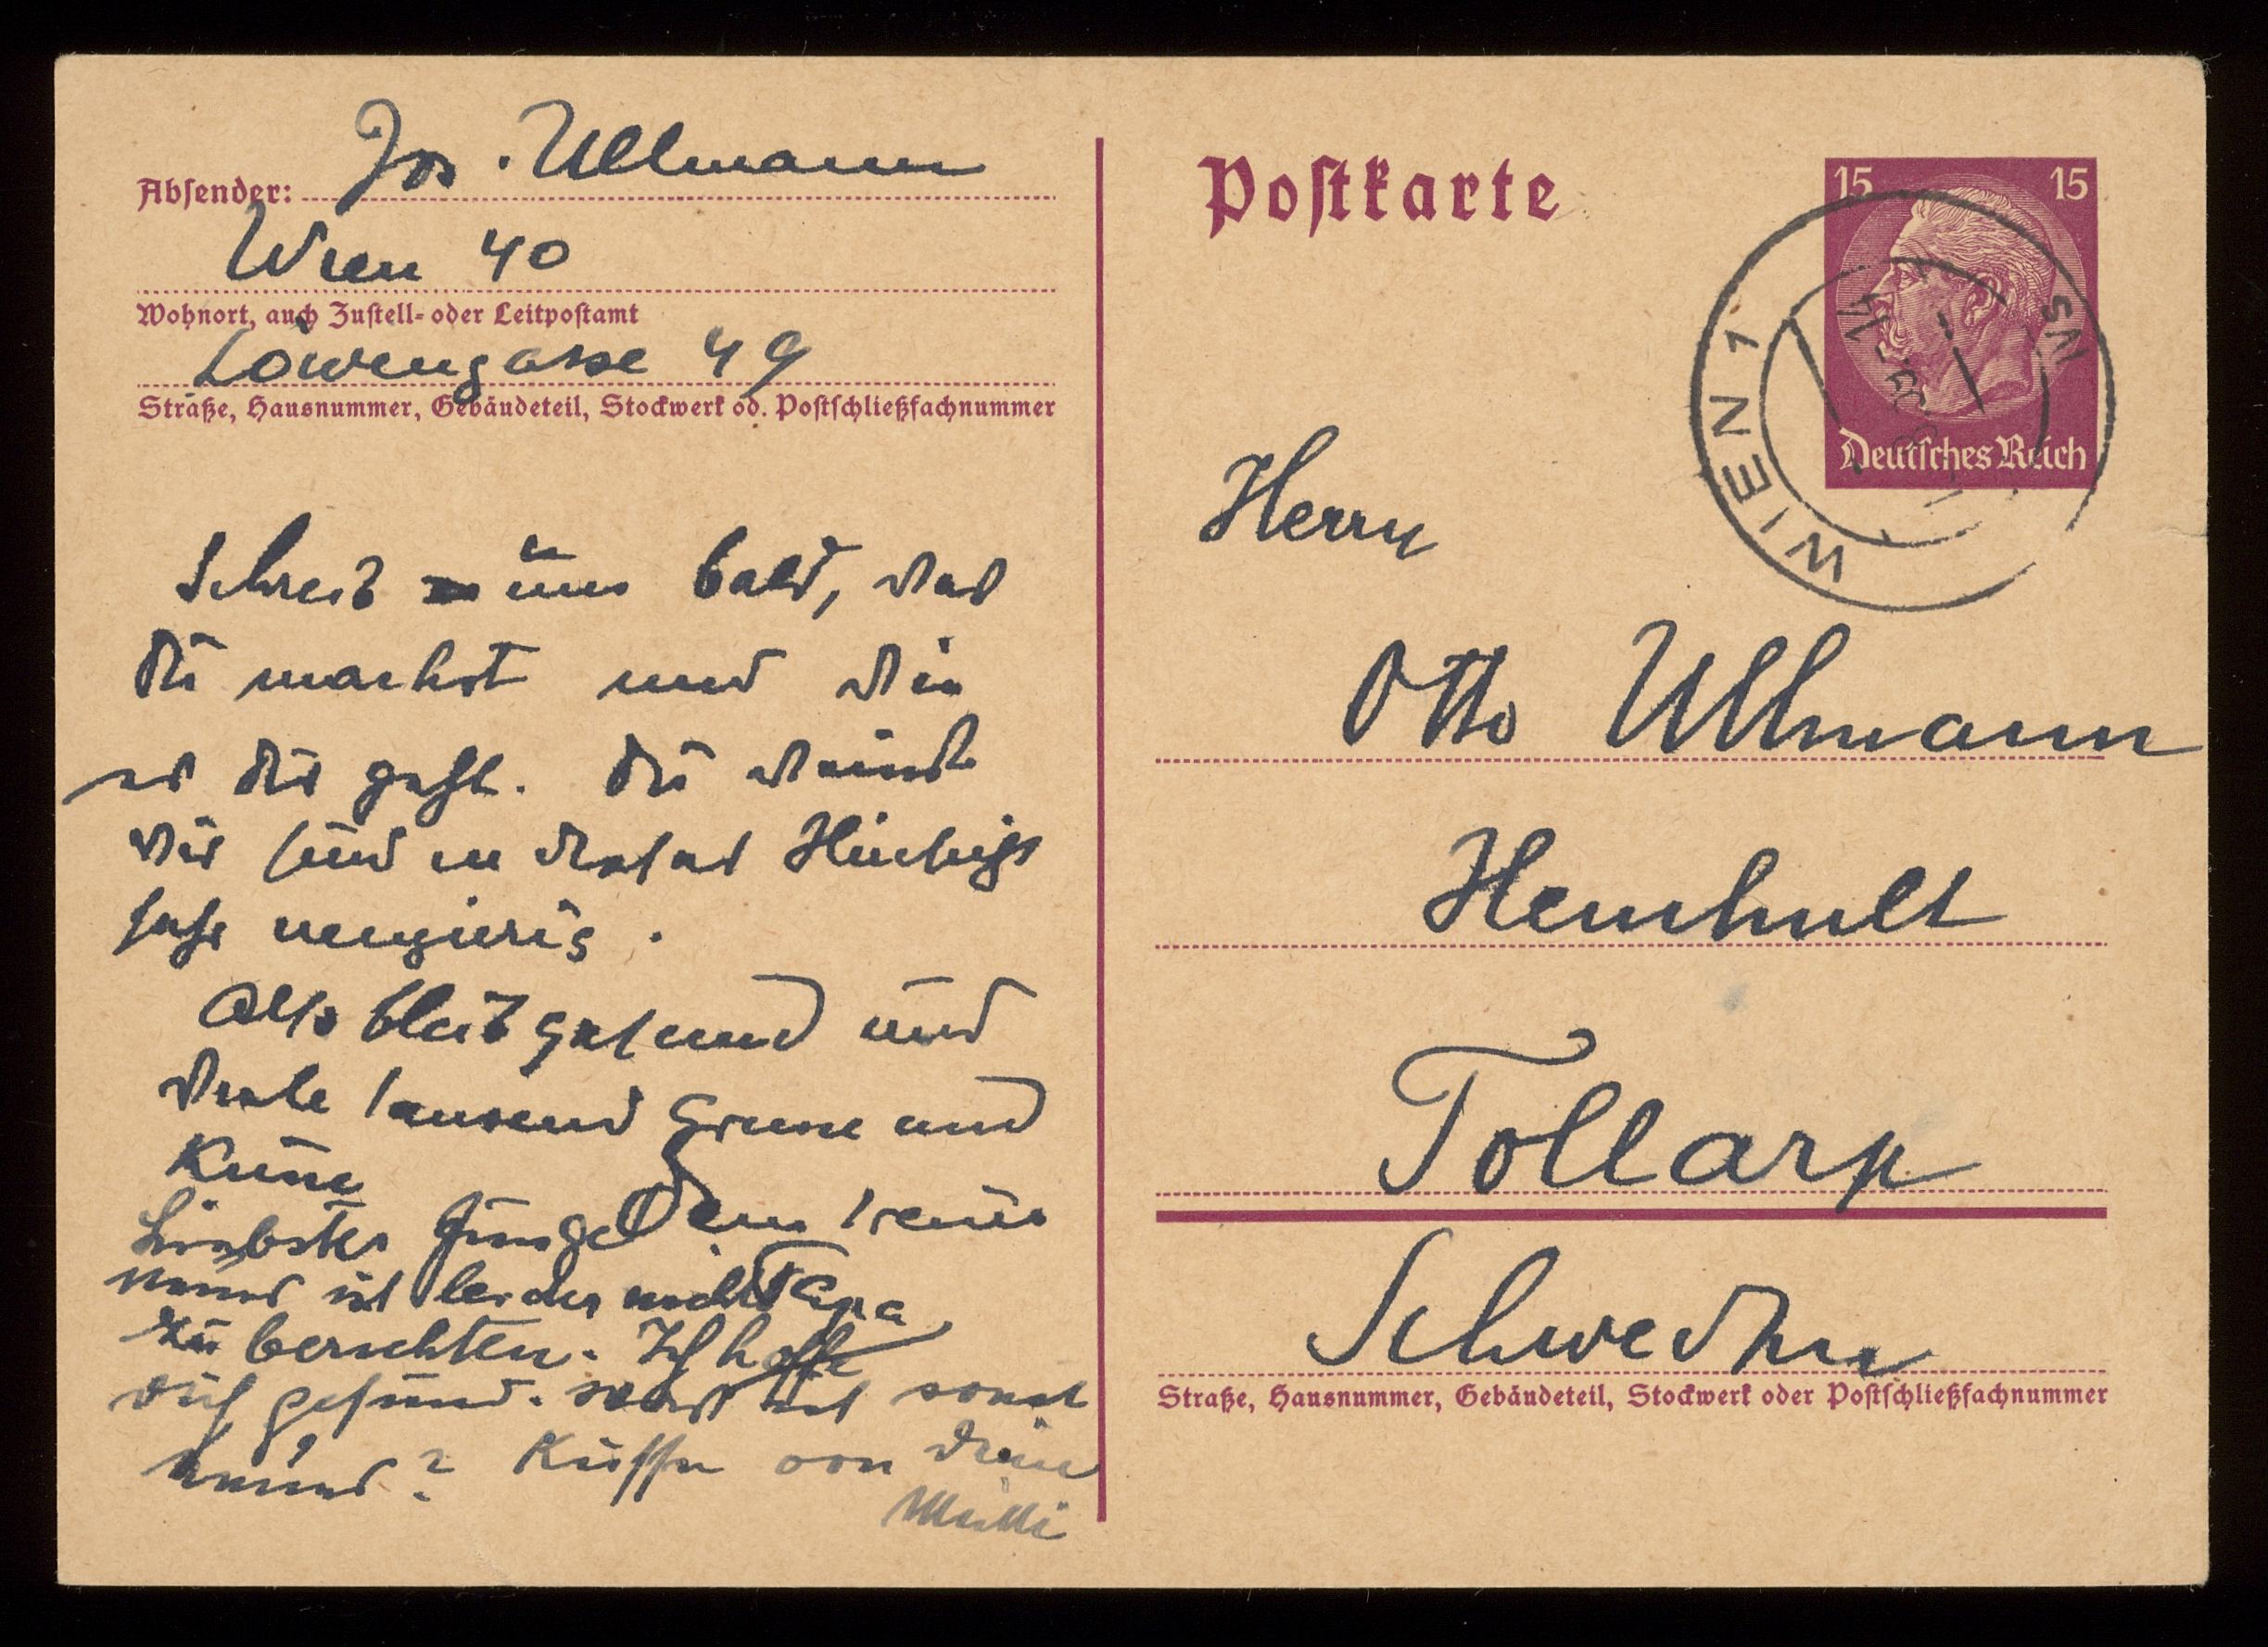 Absender: Jos. Ullmann
Wien 40
Wohnort, auch Zustell- oder Leitpostamt
Löwengasse 49
Straße, Hausnummer, Gebäudeteil, Stockwerk od. Postschließfachnummer
Schreib uns bald, was
Du machst und wie
es Dir geht. Du weisst
wir sind in dieser Hinsicht
sehr neugierig.
Also bleib gesund und
viele tausend Grüsse und
Küsse
Dein treuer
Papa
Liebster Junge
Neues ist leider nicht
zu berichten. Ich hoffe
Dich gesund. Was ist sonst
neues? Küsse von Deiner
Mutti
Postkarte
15 15
Deutsches Reich
WIEN 1
Herrn
Otto Ullmann
Hemhult
Tollarp
Schweden
Straße, Hausnummer, Gebäudeteil, Stockwerk oder Postschließfachnummer